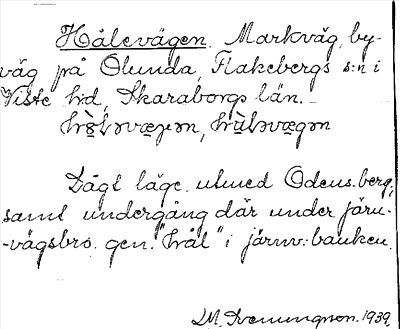 Hålevägen. Markväg, by-
väg på Olunda, Flakebergs s:n i
Viste h:d, Skaraborgs län.
Lågt läge utmed Odens berg,
samt undergång där under järn-
-vägsbro. gen. "hål" i järnv: banken.
1939.